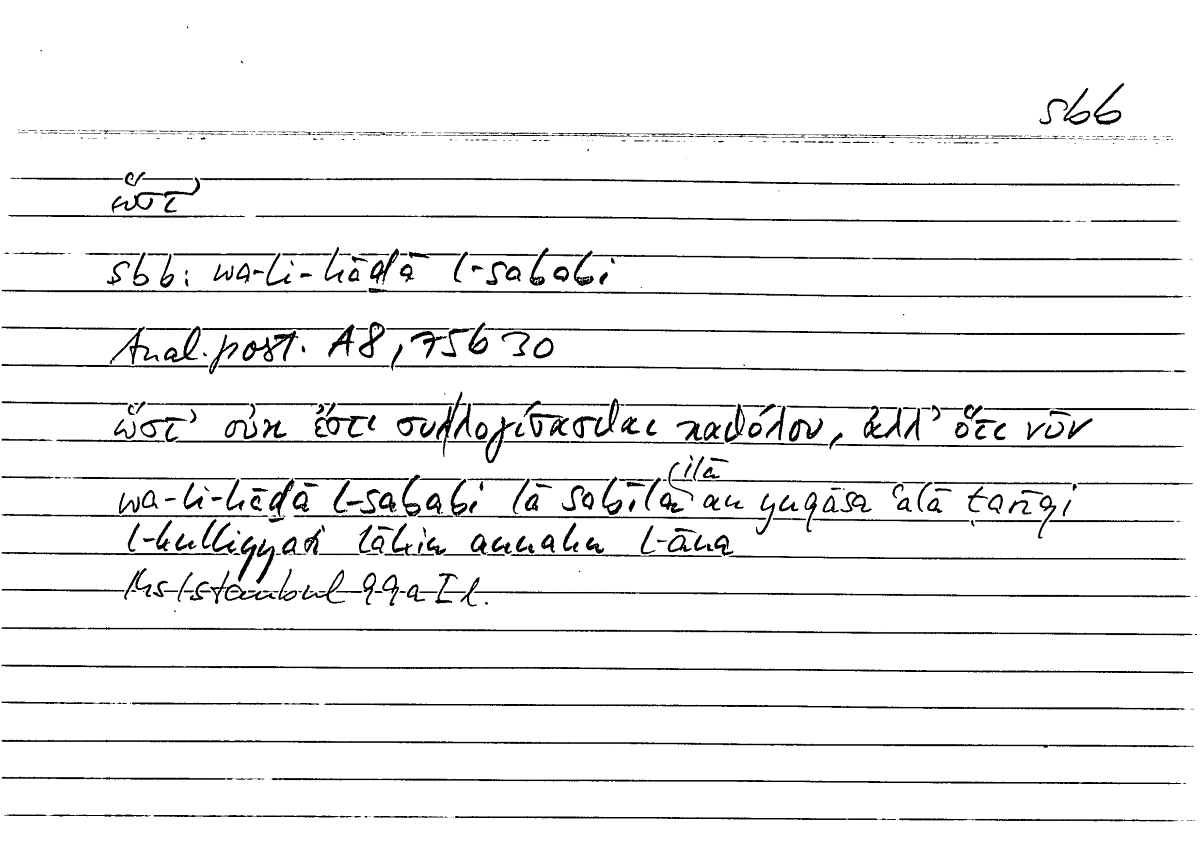 sbb
ὥστ’
sbb: wa-li-hāḏā l-sababi
Anal. post. A8, 75b30
ὥστ’ οὐκ ἔστι συλλογίσασθαι καθόλου, ἀλλ’ ὅτι νῦν
(ilā
wa-li-hāḏā l-sababi lā sabīla an yuqāsa ʿalā ṭarīqi
l-kulliyyati lākin annahu l-āna
Ms Istanbul 99a I l.